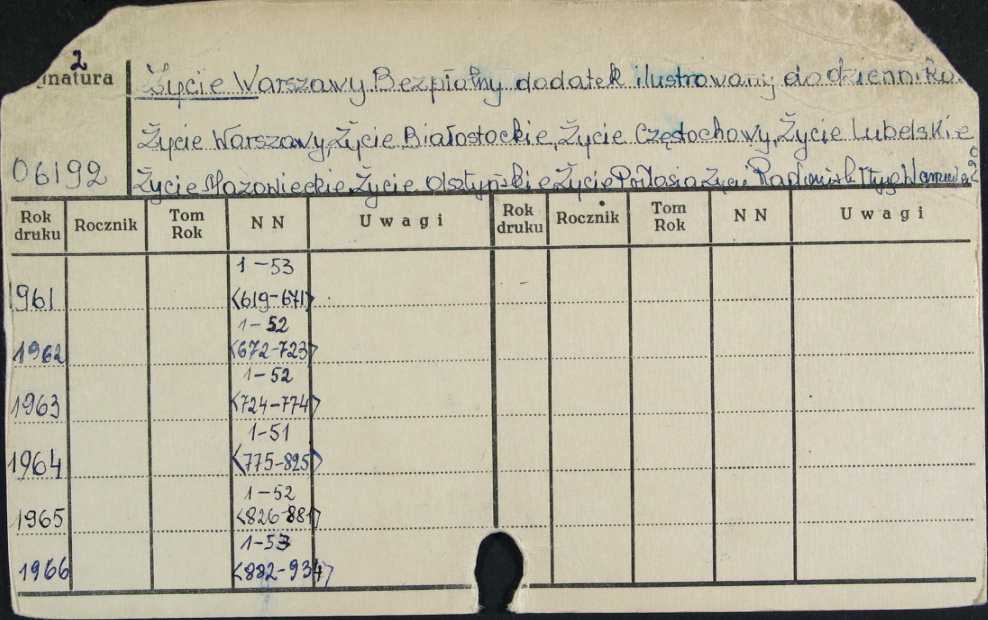 2
natura
Życie Warszawy. Bezpłatny dodatek ilustrowany do dziennika.
Życie Warszawy, Życie Białostockie, Życie Częstochowy, Życie Lubelskie
06192
Życie Mazowieckie, Życie Olsztyńskie, Życie Podlasia, Życie
Rok druku Rocznik Tom Rok NN Uwagi Rok druku Rocznik Tom Rok NN Uwagi
1-53
1961 <619-671>
1-52
1962 <672-723>
1-52
1963 <724-774>
1-51
1964 <775-825>
1-52
1965 <826-881>
1-53
1966 <882-934>